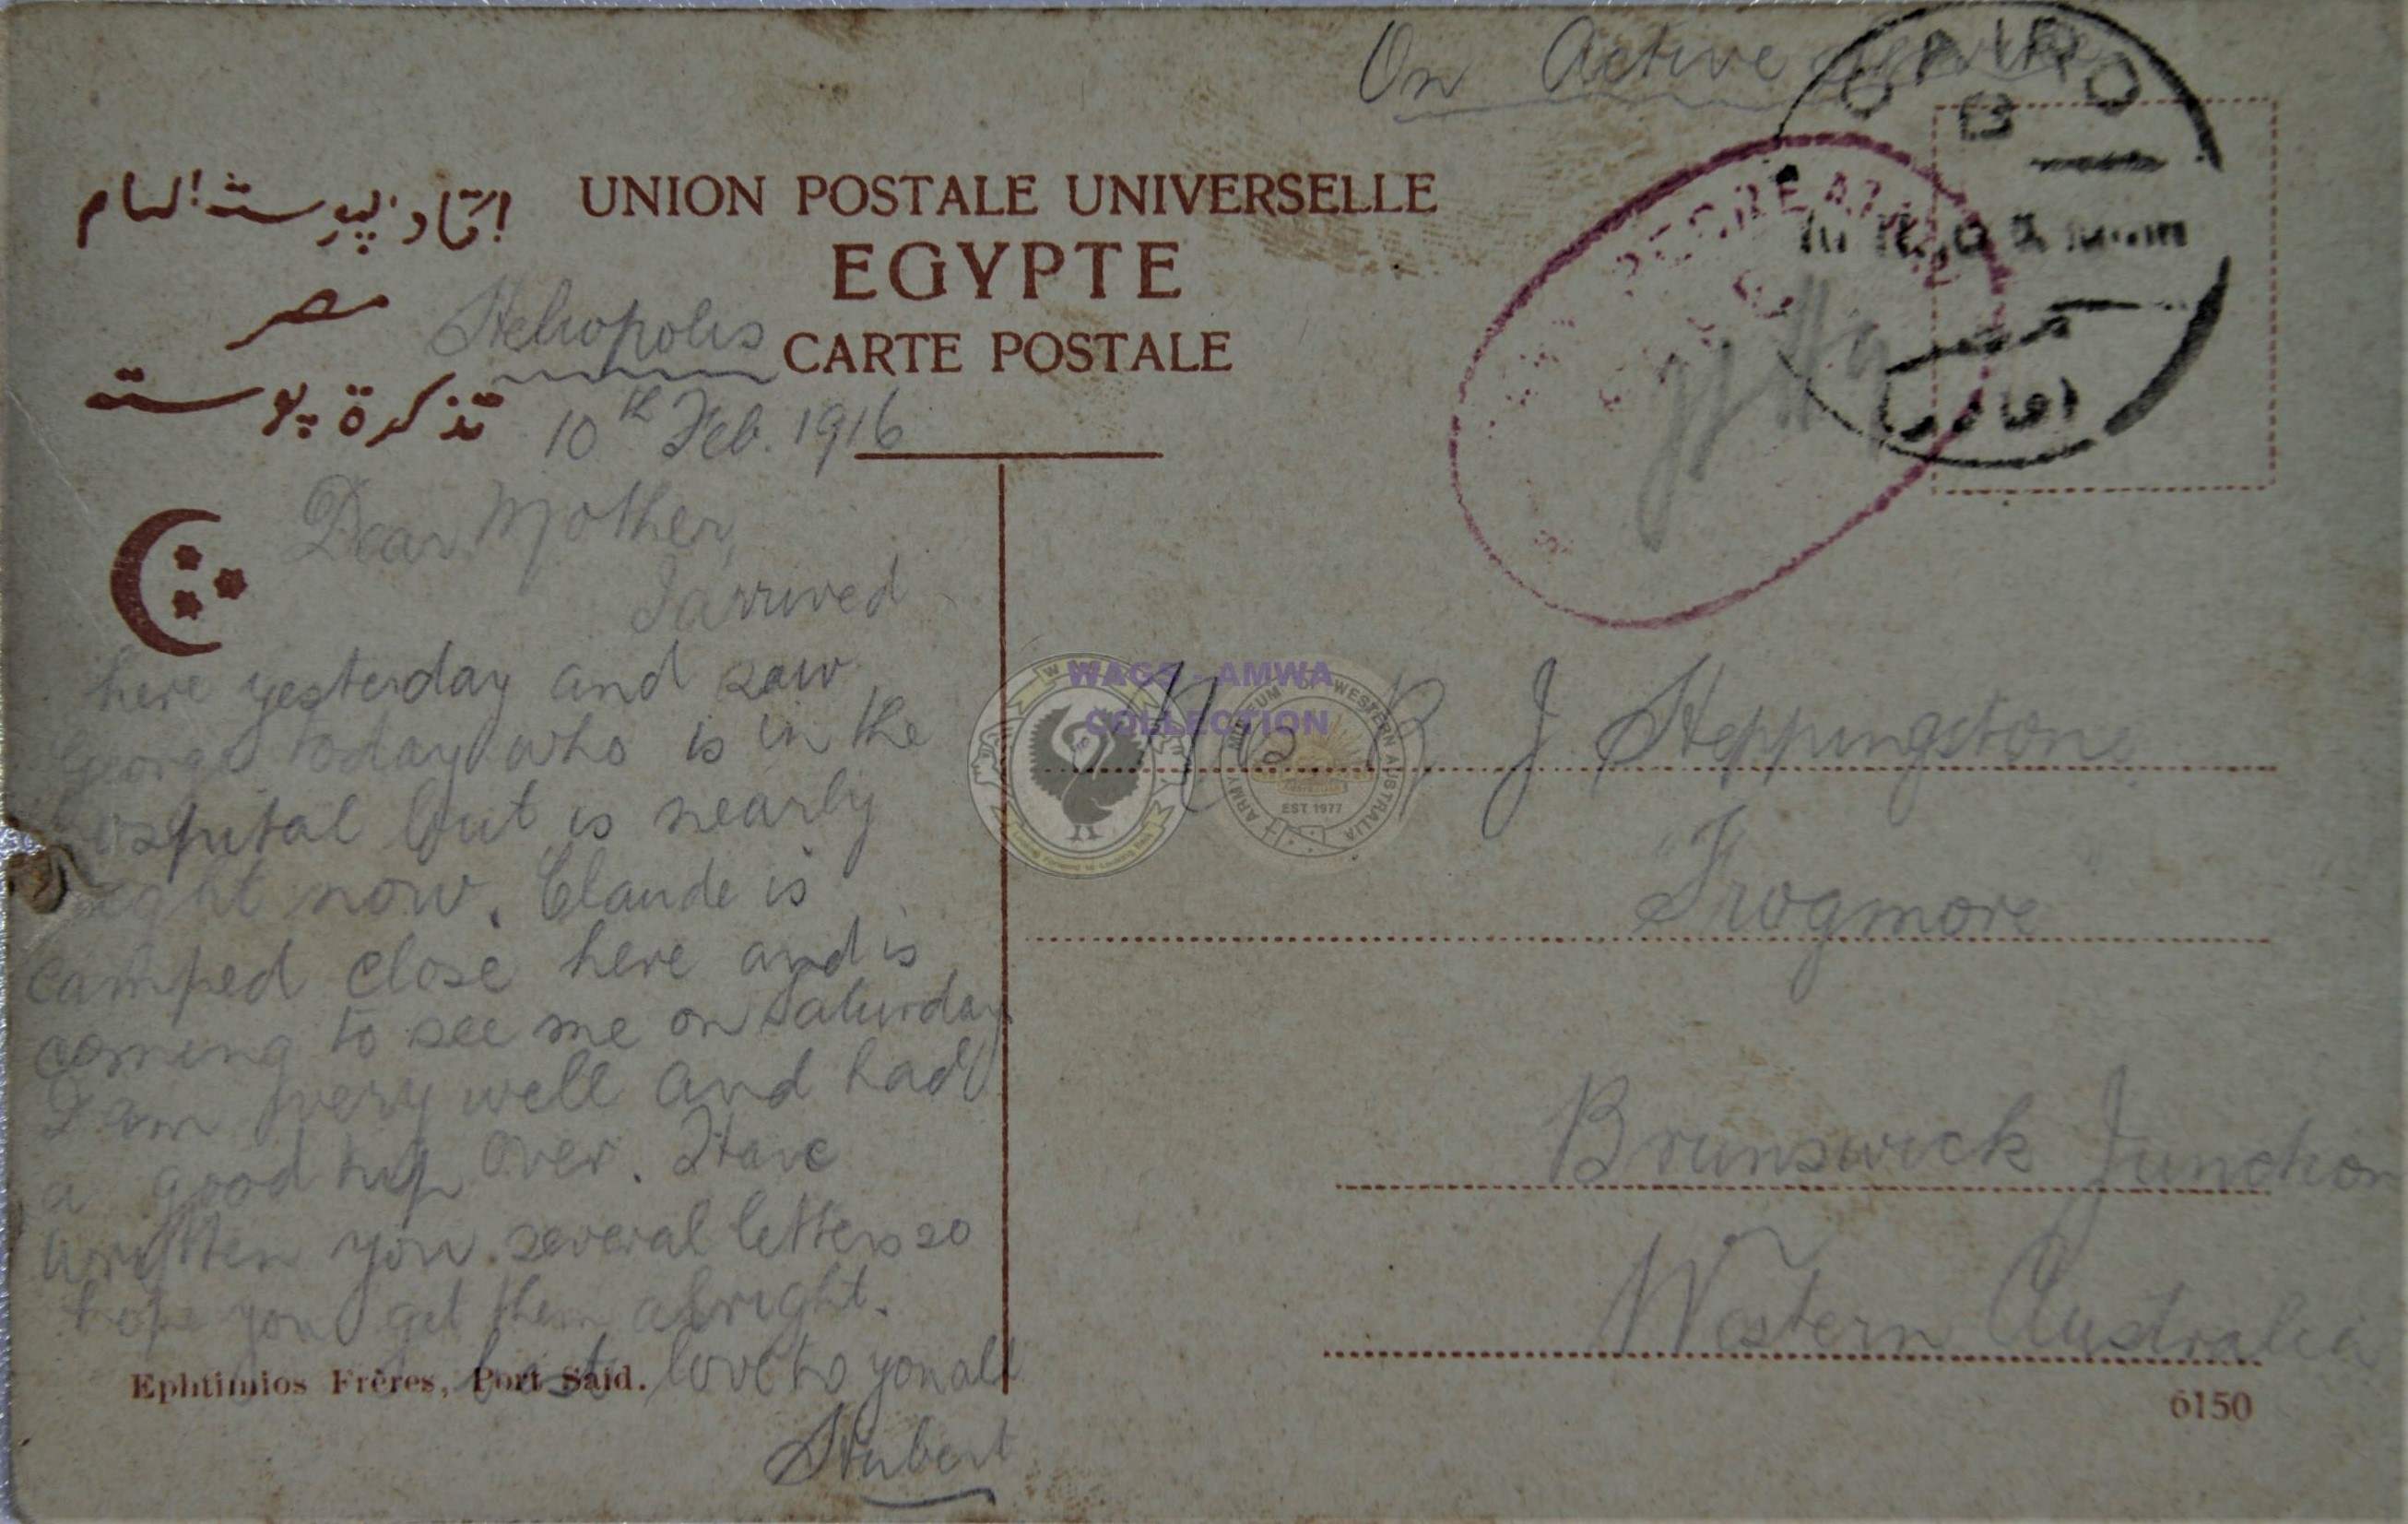 On Active Service
CAIRO
B
اتحاد البوسته العام
UNION POSTALE UNIVERSELLE
مصر
EGYPTE
تذكرة بوسته
CARTE POSTALE
Heliopolis
10th Feb. 1916
Dear Mother,
I arrived
here yesterday and saw
George today who is in the
hospital but is nearly
right now. Claude is
camped close here and is
coming to see me on Saturday
I am very well and had
a good trip over. Have
written you several letters so
hope you get them alright.
best love to you all
Hubert
Ephtimios Frères, Port Said.
WAGS - AMWA
COLLECTION
ARMY MUSEUM OF WESTERN AUSTRALIA
EST 1977
B J Heppingstone
"Frogmore"
Brunswick Junction
Western Australia
6150